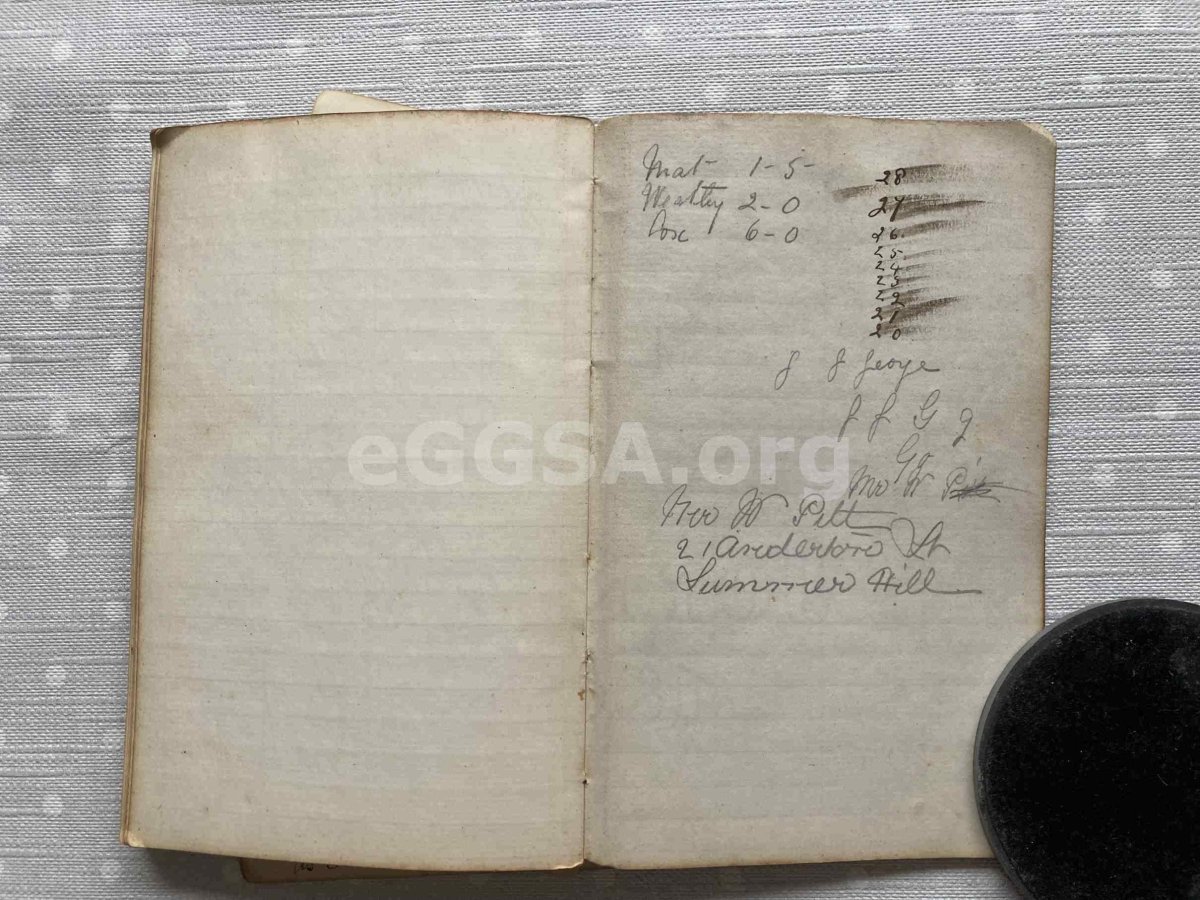 Mat 1-5-
2-0
Cox 6-0
28
27
26
25
24
23
22
21
20
J J George
J J G J
G
W
W Pitt
21 Anderton St
Summer Hill
eGGSA.org